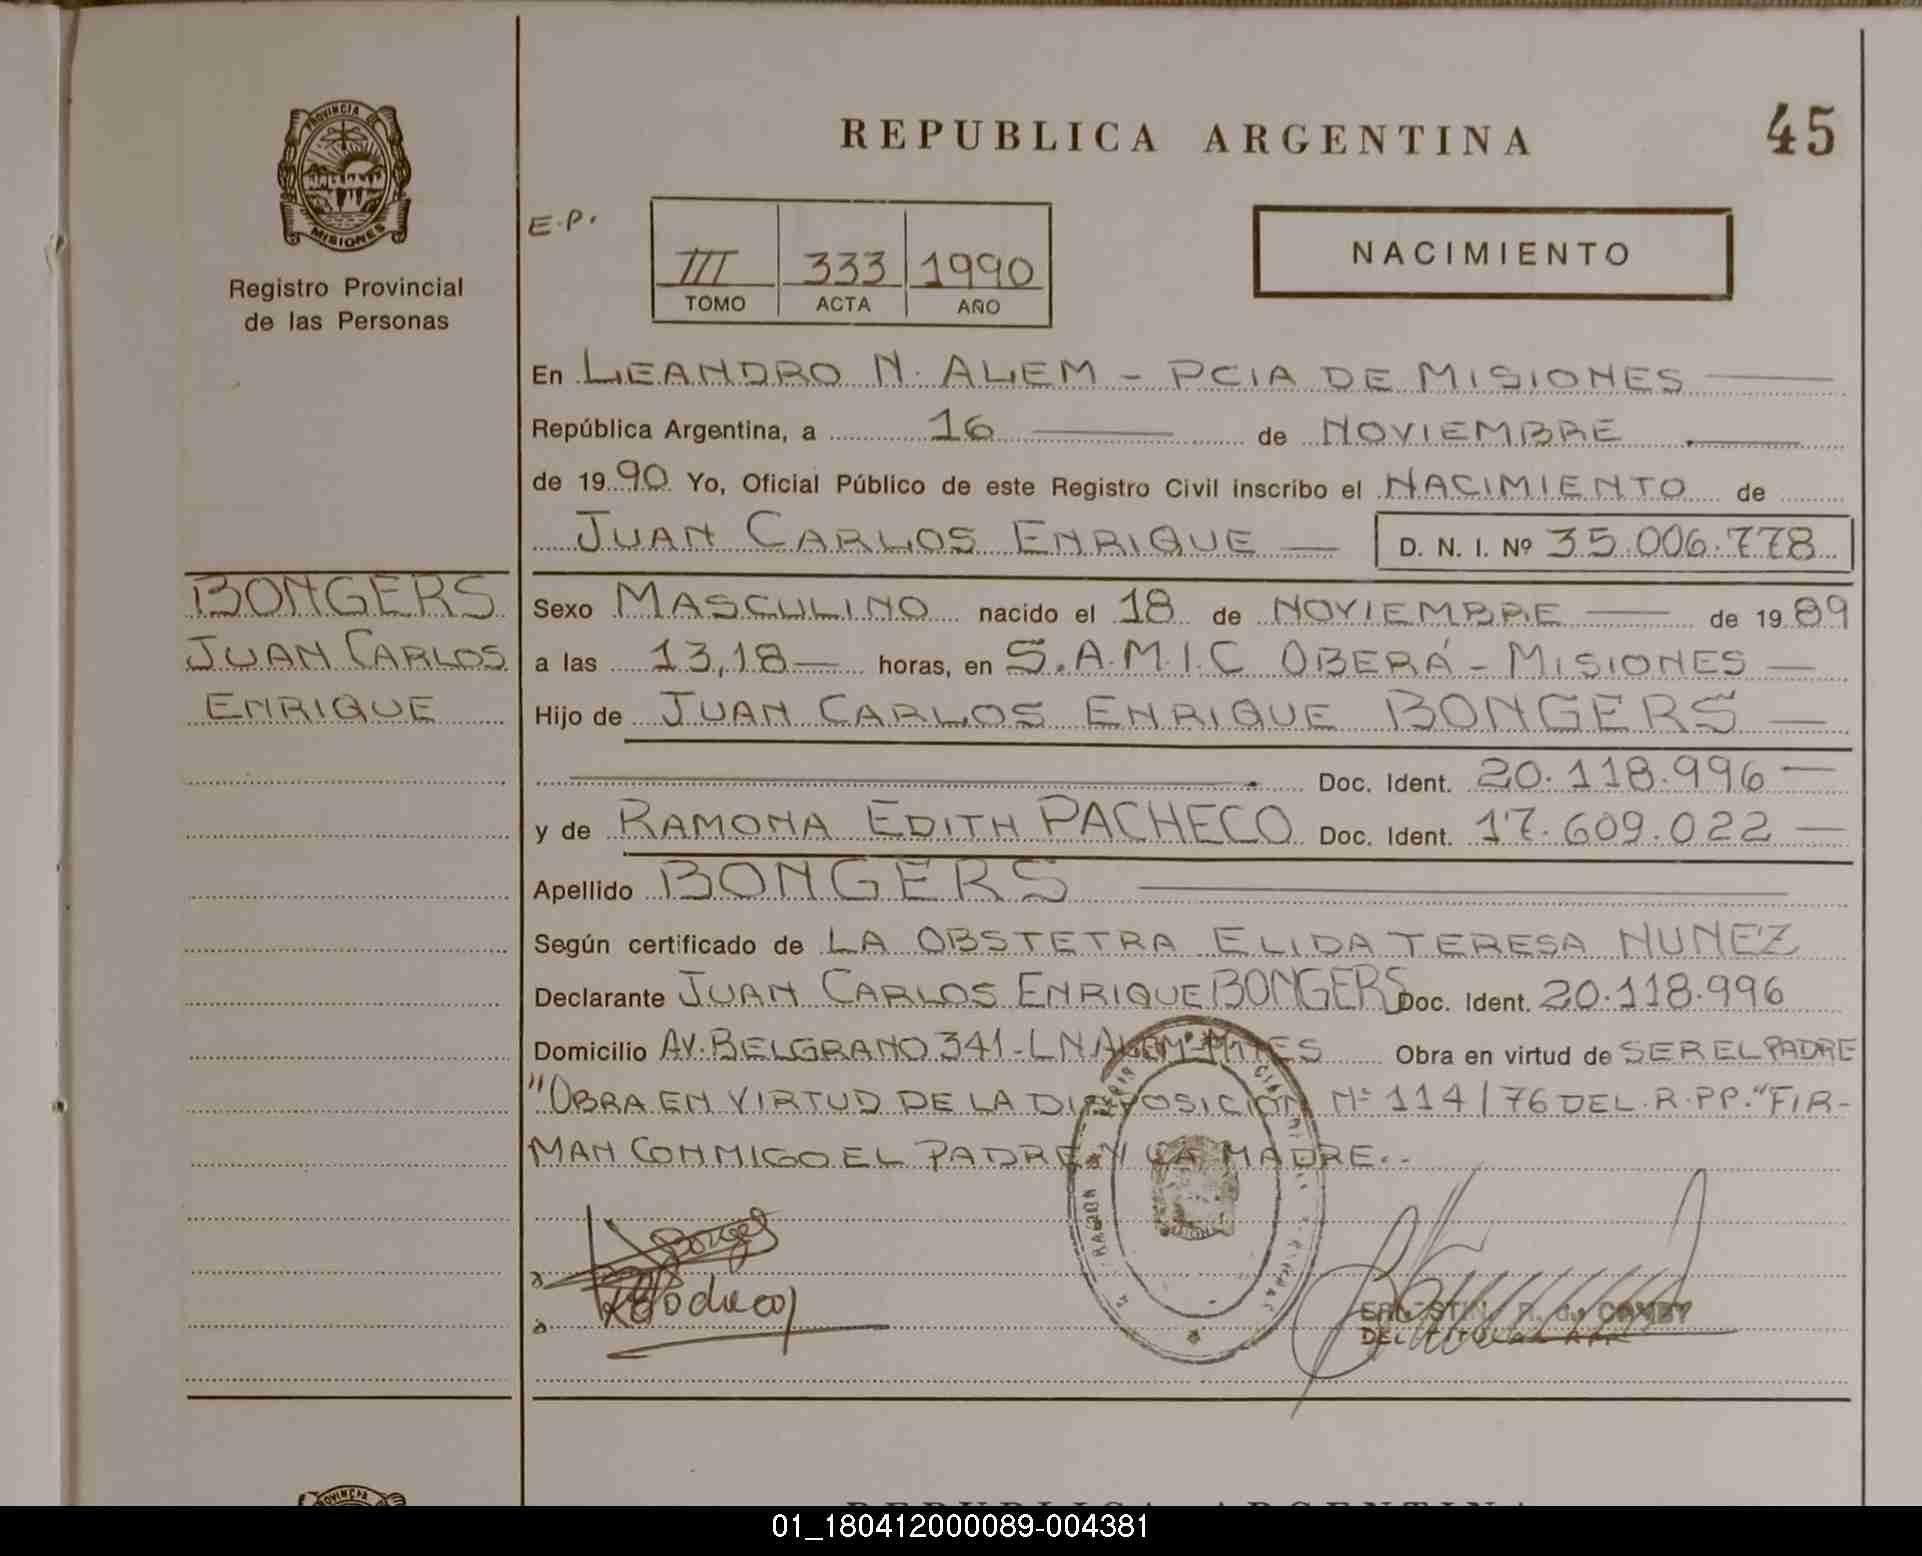 PROVINCIA DE
MISIONES
Registro Provincial
de las Personas
REPUBLICA ARGENTINA
45
E.P.
III 333 1990
TOMO ACTA AÑO
NACIMIENTO
En LEANDRO N. ALEM - PCIA DE MISIONES
República Argentina, a 16 de NOVIEMBRE
de 1990 Yo, Oficial Público de este Registro Civil inscribo el NACIMIENTO de
JUAN CARLOS ENRIQUE — D. N. I. Nº 35.006.778
BONGERS
JUAN CARLOS
ENRIQUE
Sexo MASCULINO nacido el 18 de NOVIEMBRE — de 1989
a las 13,18 — horas, en S.A.M.I.C OBERÁ - MISIONES —
Hijo de JUAN CARLOS ENRIQUE BONGERS —
Doc. Ident. 20.118.996 —
y de RAMONA EDITH PACHECO Doc. Ident. 17.609.022 —
Apellido BONGERS
Según certificado de LA OBSTETRA ELIDA TERESA NUNEZ
Declarante JUAN CARLOS ENRIQUE BONGERS Doc. Ident. 20.118.996
Domicilio AV. BELGRANO 341 - LN ALEM - Mnes Obra en virtud de SER EL PADRE
"OBRA EN VIRTUD DE LA DISPOSICION Nº 114/76 DEL R.PP." FIR-
MAN CONMIGO EL PADRE Y LA MADRE..
Bonges
DEL TITULAR
PROVINCIA
REPUBLICA ARGENTINA
01_180412000089-004381